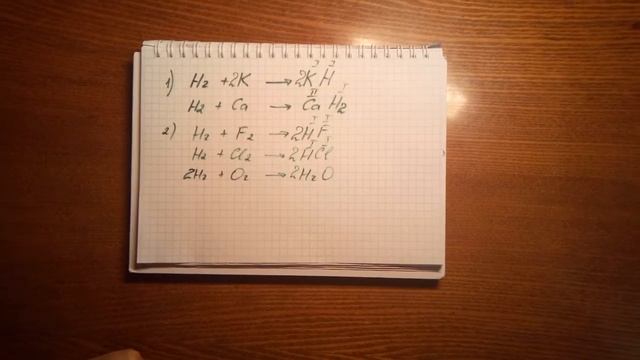 1) H₂ + 2K → 2K^I H^I
H₂ + Ca → Ca^II H^I₂
2) H₂ + F₂ → 2H^I F^I
H₂ + Cl₂ → 2H^I Cl^I
2H₂ + O₂ → 2H₂O